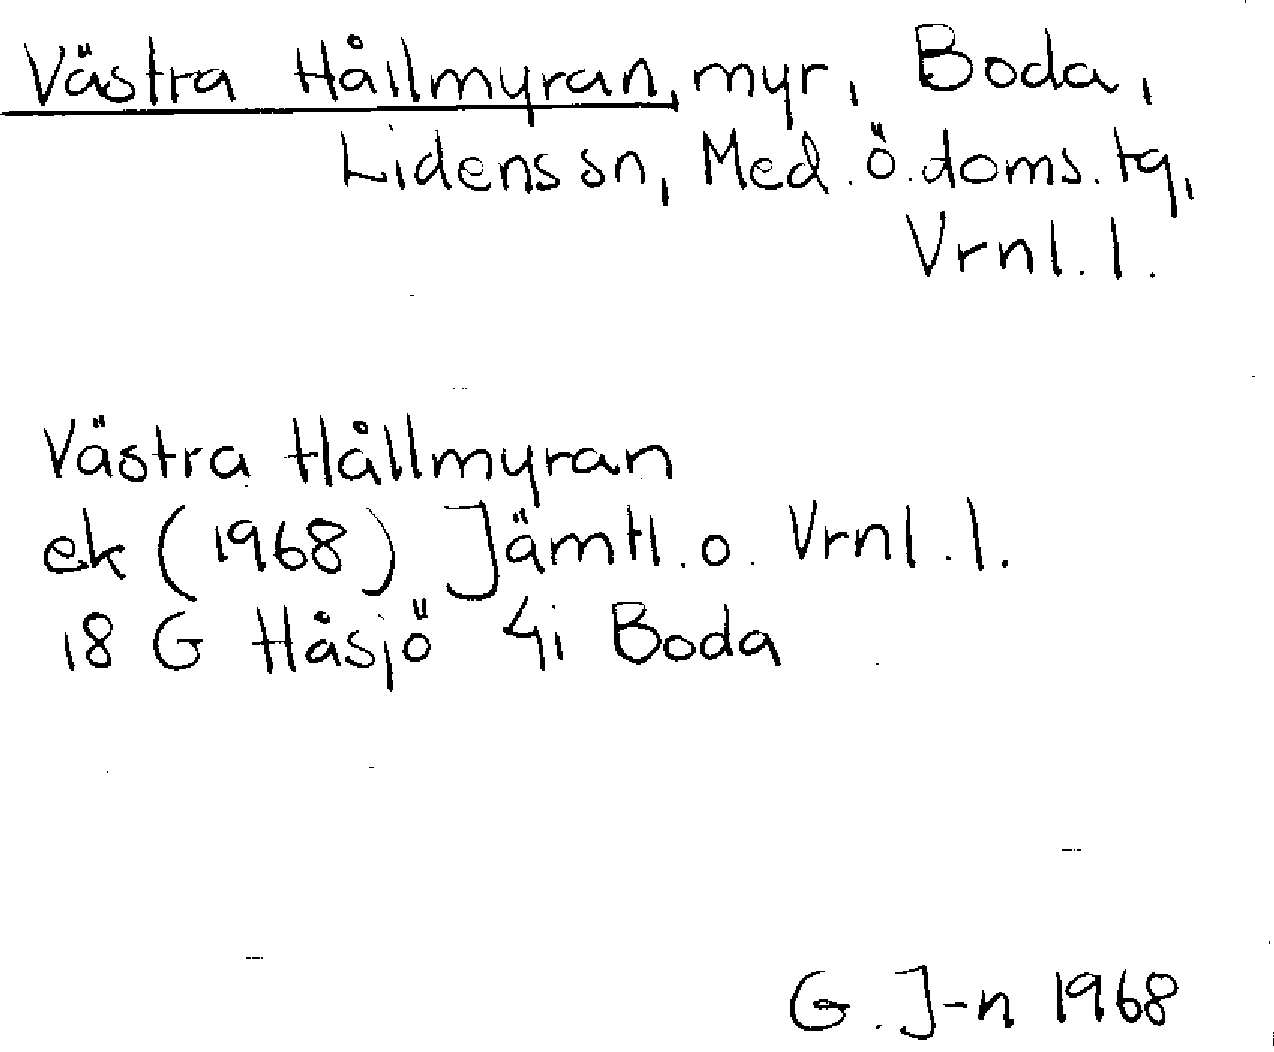 Västra Hållmyran, myr, Boda,
Lidens sn, Med. ö. doms. tg,
Vrnl. l.
Västra Hållmyran
ek (1968) Jämtl. o. Vrnl. l.
18 G Håsjö 4i Boda
G. J-n 1968